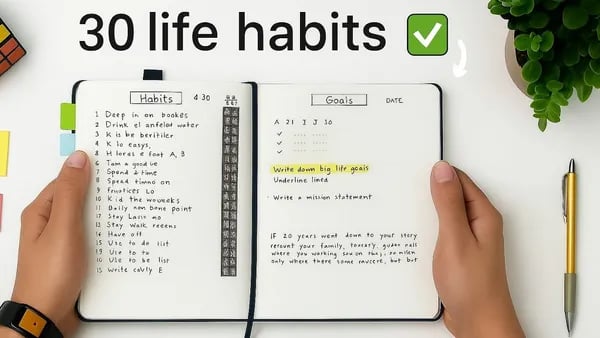 30 life habits
Habits 4 30
1 Deep in on bookes
2 Drink el anfelod water
3 K is be bertiler
4 K lo easys,
8 H loras e foot A, B
6 Tam a good ve
7 Spend a time
8 Spend timno on
9 fruotices Lo
10 Kid the wouweeks
11 Daily non bone point
17 Stay Lasso mo
13 Stay walk reeens
16 Have off
15 Use to do list
19 Use to to
10 Use to be list
15 write cavly E
Goals DATE
A 21 I J 30
Write down big life goals
Underline lined
· Write a mission statement
IF 20 years went down to your story
recount your family,
where you working sou on this,
only where there some muscre, but but